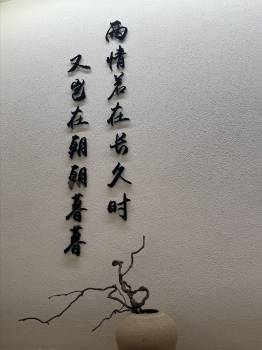 两情若在长久时
又岂在朝朝暮暮